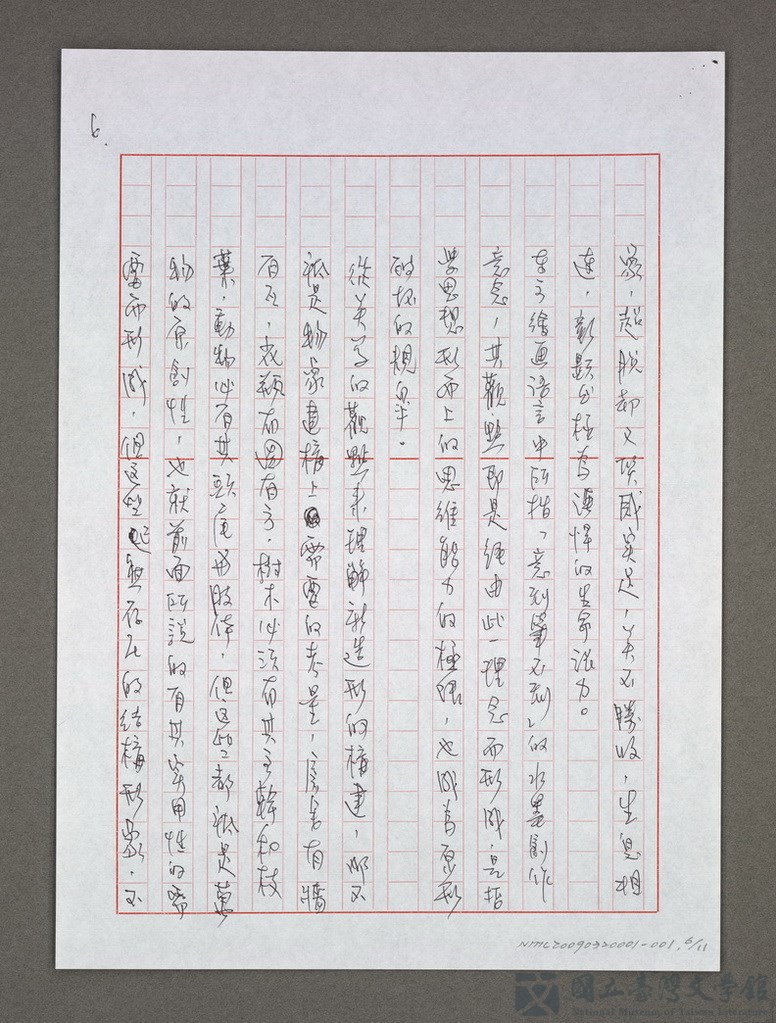 6.
象,超脫卻又質感異是,美不勝收,生息相
連,彰顯出極為濃悍的生命張力。
在言繪畫語言中所指「意到筆不到」的水墨創作
意念,其觀點即是經由此一理念而形成,是哲
學思想形而上的思維能力的極強,也成為原形
破格的規臬。
從美學的觀點來理解新造形的構建,那不
祇是物象建構上需要的考量,房舍有牆
有瓦,衣飾有圓有方,樹木必須有其主幹和枝
葉,動物必有其頭尾與肢體,但這些都祇是萬
物的原創性,也就前面所說的有其實用性的需
要而形成,但這些無存在的結構形象,不
NMTL20090320001-001, 6/11
國立臺灣文學館
National Museum of Taiwan Literature